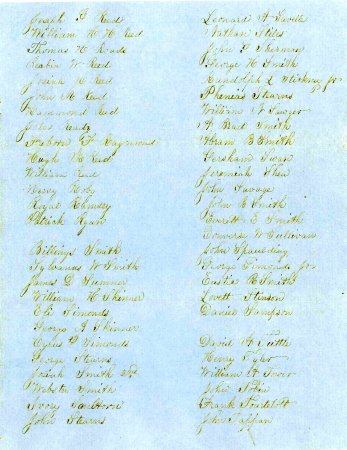 Joseph F Reed
William H H Reed
Thomas H Roads
Reabin W Reed
Josiah H Reed
John M Reed
Hammond Reed
Jules
Seaborn F Raymond
Hugh M Reed
William Reed
Henry Roby
Royal Ramsey
Patrick Ryan
Billings Smith
Sylvanus W Smith
James D Sumner
William H Skinner
Eli Simonds
George J Skinner
Cyrus P Simonds
George Stearns
Josiah Smith
Webster Smith
Ivory Sanborn
John Stearns
Leonard A Saville
Nathan Stiles
John P Sherman
George H Smith
Randolph L Stickney jr
Phineas Stearns
William J Sawyer
A Brad Smith
Abram B Smith
Gersham Swan
Jeremiah Shea
John Savage
John B Smith
Everett S Smith
Converse W Sullivan
John Spaulding
George Simonds jr
Eustis B Smith
Lovett Stimson
Daniel Sampson
David A Tuttle
Henry Tyler
William H
John Tobin
Frank
John Tappan